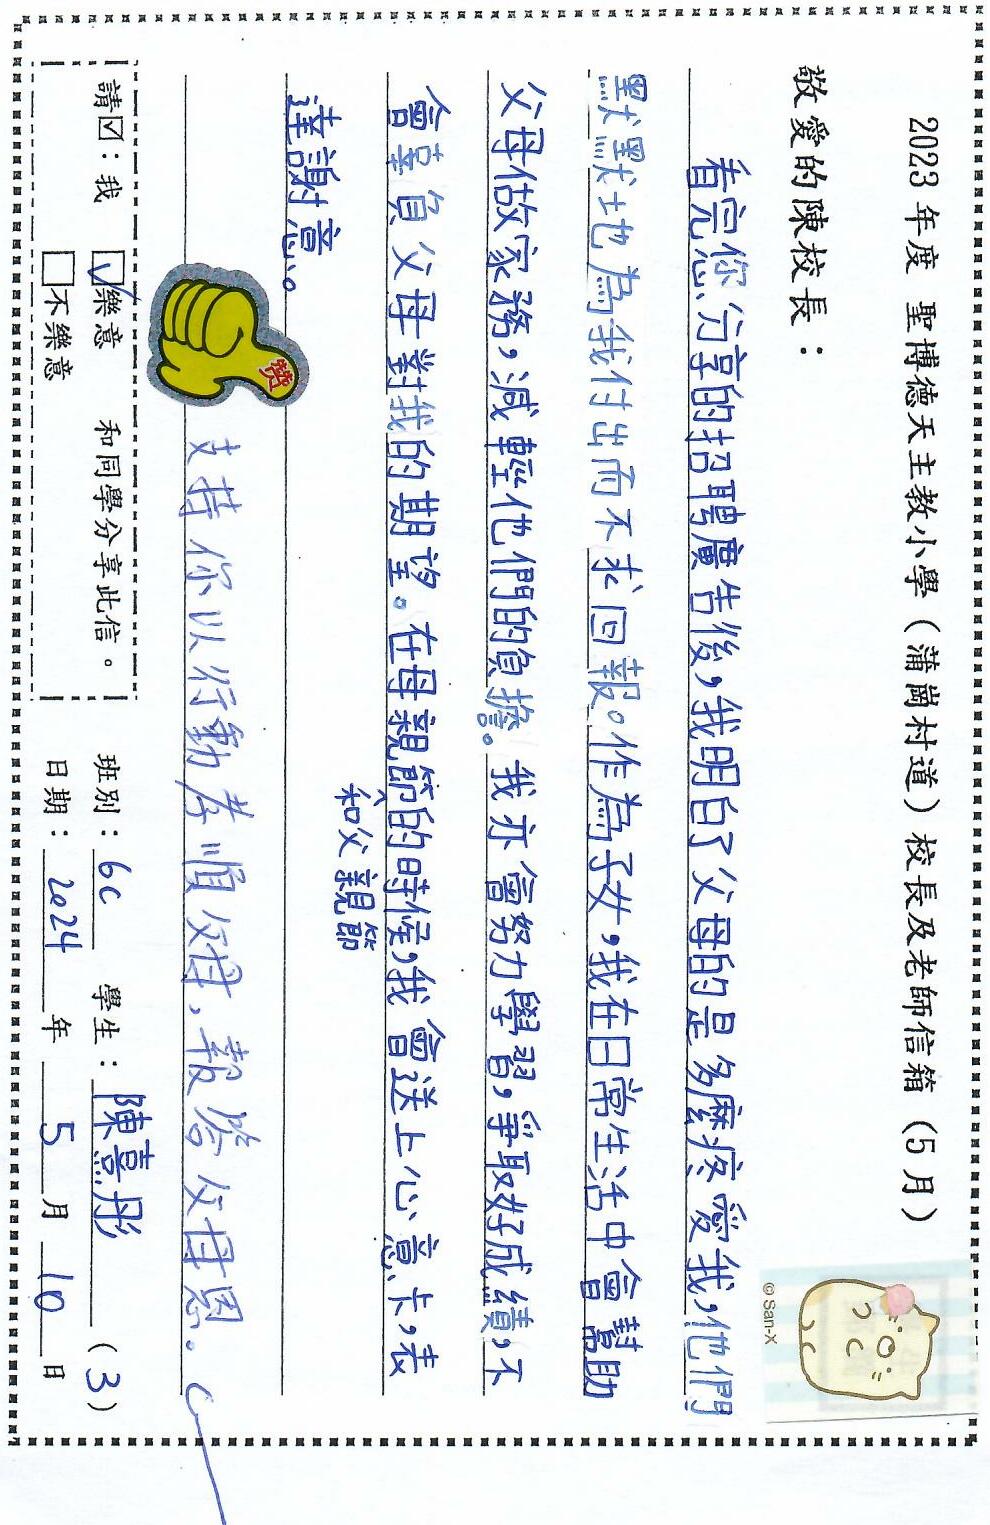 2023 年度 聖博德天主教小學（蒲崗村道）校長及老師信箱（5 月）
敬愛的陳校長：
看完您分享的招聘廣告後，我明白了父母的是多麼疼愛我，他們
默默地為我付出而不求回報。作為子女，我在日常生活中會幫助
父母做家務，減輕他們的負擔。我亦會努力學習，爭取好成績，不
會辜負父母對我的期望。在母親節的時候，我會送上心意卡，表
和父親節
達謝意。
赞
支持你以行動孝順父母，報答父母恩。
請☑：我 ☑樂意 和同學分享此信。
□不樂意
班別：6C 學生：陳熹彤（3）
日期：2024 年 5 月 10 日
©San-X